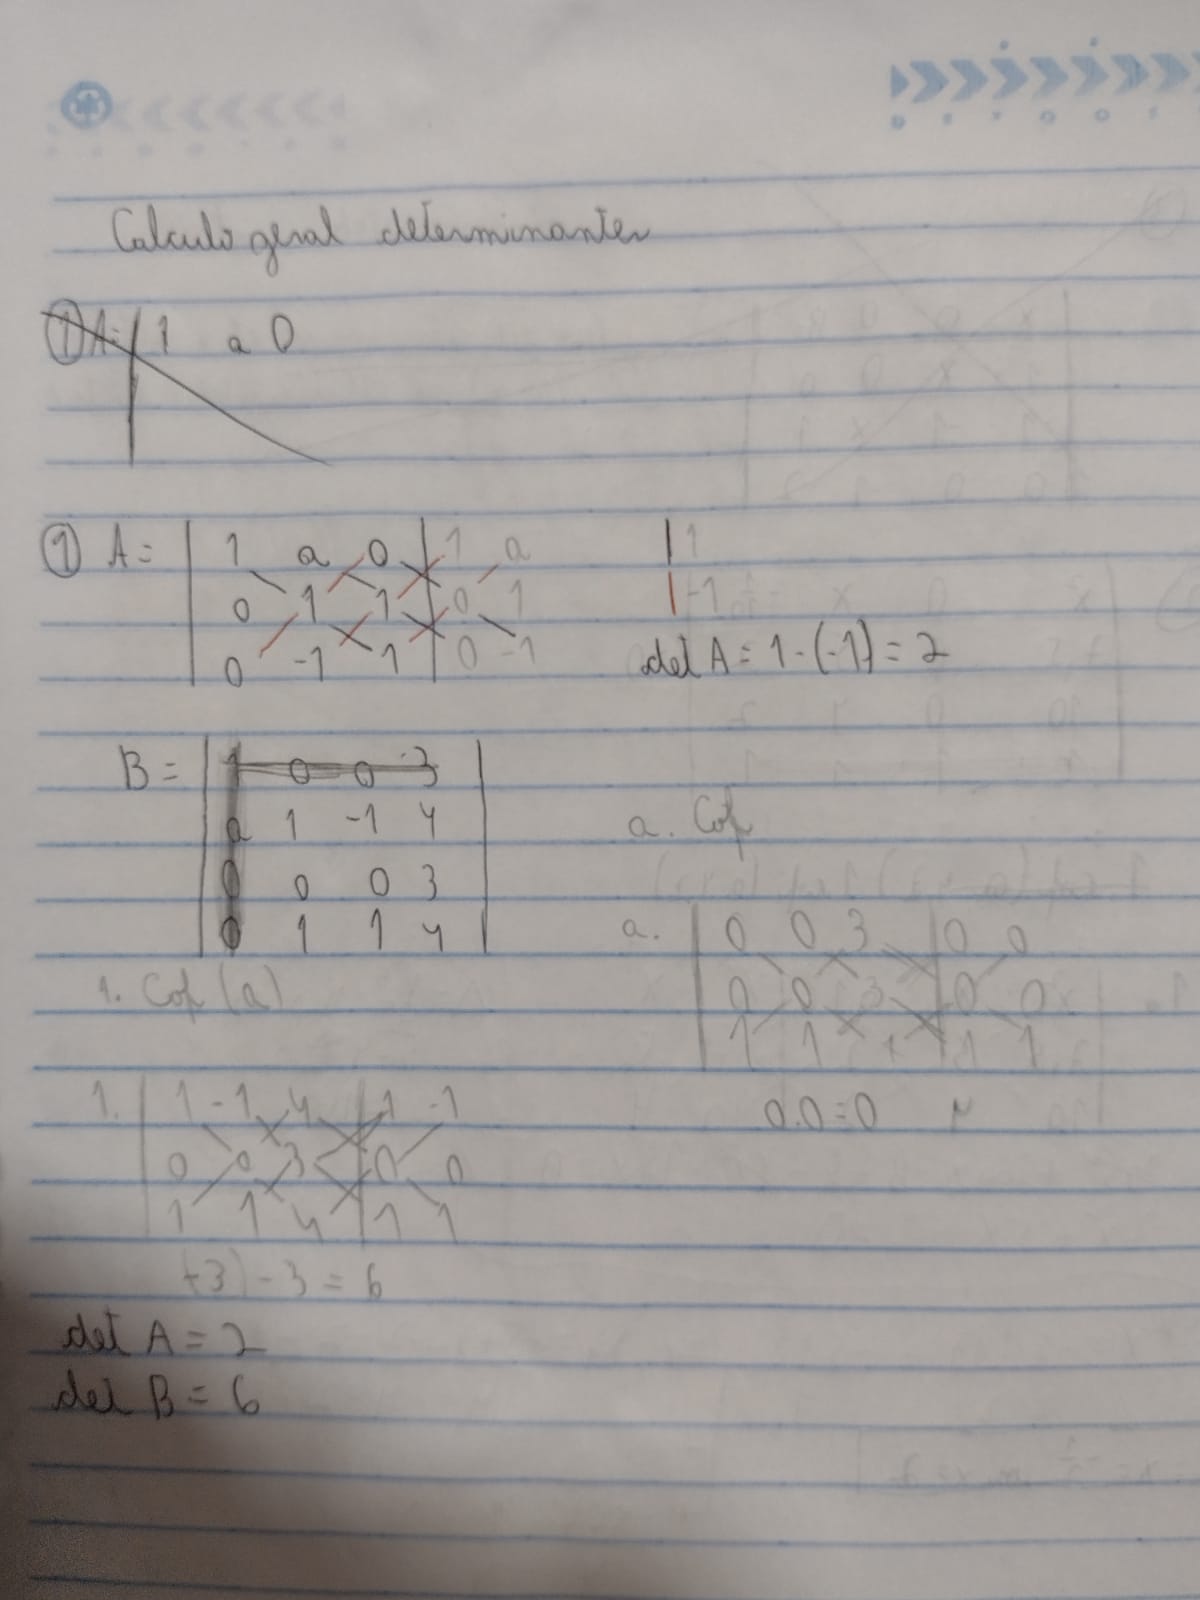 Calculo geral determinantes
① A= | 1 a 0
① A= | 1 a 0 | 1 a
0 1 1 | 0 1
0 -1 1 | 0 -1
| 1
| -1
det A = 1-(-1) = 2
B = | 1 0 0 3 |
a 1 -1 4
0 0 0 3
0 1 1 4
1. Cof (a)
a. Cof
a. | 0 0 3 | 0 0
0 0 3 | 0 0
1 1 | 1 1
0.0=0
1. | 1 -1 4 | 1 -1
0 0 3 | 0 0
1 1 4 | 1 1
-3) - 3 = 6
det A = 2
det B = 6